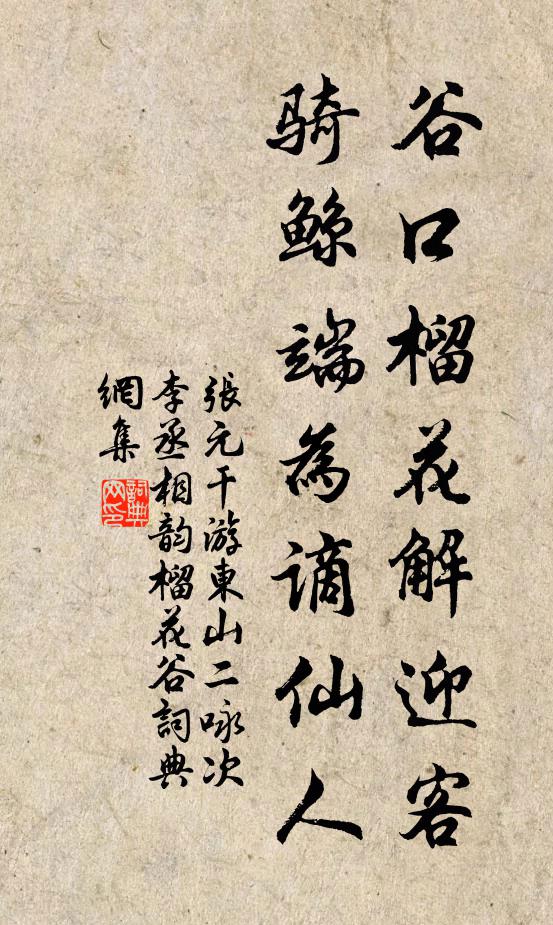 谷口榴花解迎客
骑鲸端為谪仙人
張元干游東山二咏次
李丞相韵榴花谷詞典
網集
詞典
网印